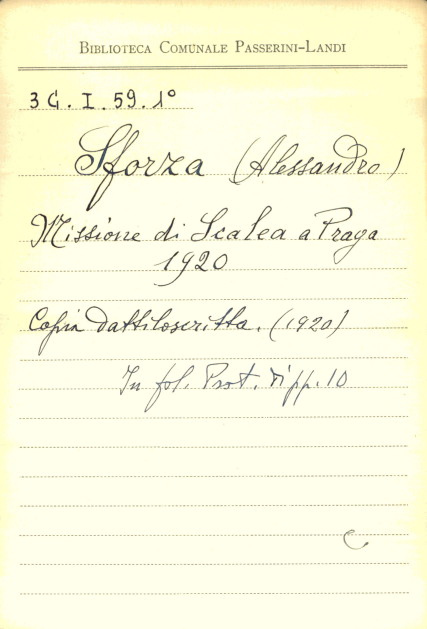 BIBLIOTECA COMUNALE PASSERINI-LANDI
3 G. I. 59. 1°
Sforza (Alessandro)
Missione di Scalea a Praga
1920
Copia dattiloscritta. (1920)
In fol. Prot. di pp. 10
C